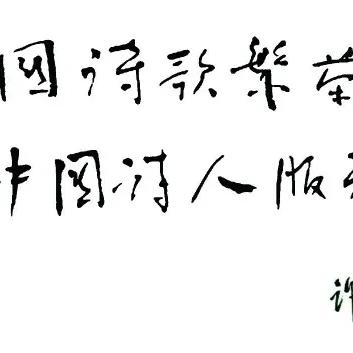 國诗歌繁荣
中国诗人版
许